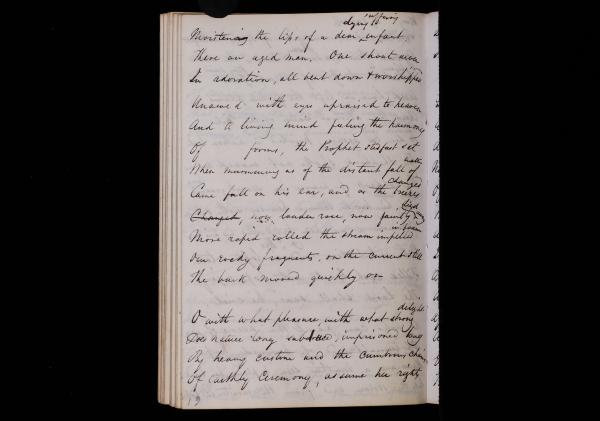 dying suffering
Moistening the lips of a dear infant
There an aged man. One shout arose
In adoration, all bent down & worshipped
Unawed with eyes upraised to heaven
And a living mind feeling the harmony
Of forms, the Prophet stedfast sat
water
When murmuring as of the distant fall of
changed
Came full on his ear, and as the breeze
died
Changed, now, louder rose, now faintly
in foam
More rapid rolled the stream impelled
Our rocky fragments, on the current still
The bark moved quickly on
delight
O with what pleasure with what strong
Does nature long subdued, imprisoned long
By heavy custom and the cumbrous chain
Of earthly Ceremony, assume her rights